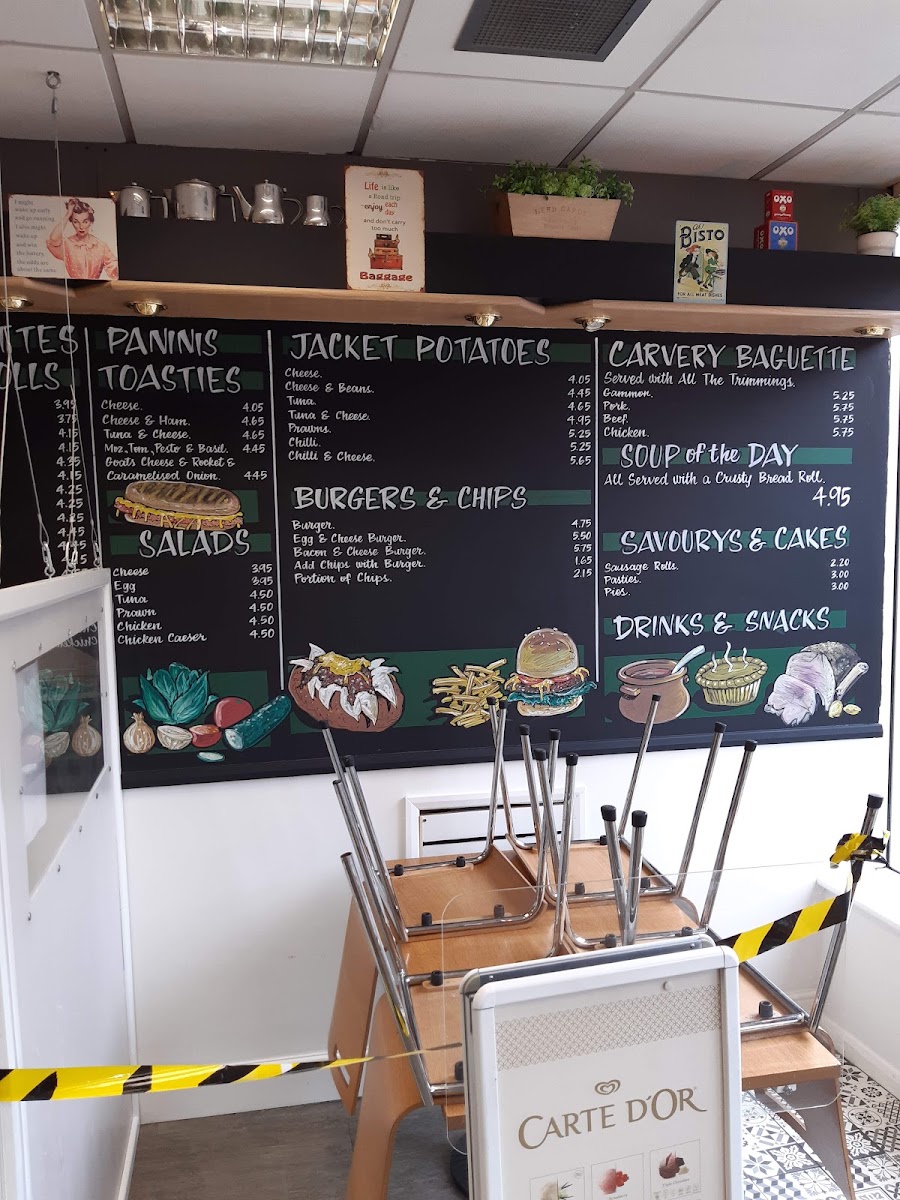 I might
wake up early
and go running
I also might
wake up
and win
the lottery
the odds are
about the same
Life is like
a Road trip
enjoy each
day
and don't carry
too much
Baggage
BISTO
FOR ALL MEAT DISHES
OXO
OXO
TTES
OLLS
3.95
3.75
4.15
4.15
4.35
4.15
4.25
4.25
4.25
4.45
4.45
PANINIS
TOASTIES
Cheese. 4.05
Cheese & Ham. 4.65
Tuna & Cheese. 4.65
Moz,Tom,Pesto & Basil. 4.45
Goats Cheese & Rocket &
Caramelised Onion. 4.45
SALADS
Cheese 3.95
Egg 3.95
Tuna 4.50
Prawn 4.50
Chicken 4.50
Chicken Caeser 4.50
JACKET POTATOES
Cheese. 4.05
Cheese & Beans. 4.45
Tuna. 4.65
Tuna & Cheese. 4.95
Prawns. 5.25
Chilli. 5.25
Chilli & Cheese. 5.65
BURGERS & CHIPS
Burger. 4.75
Egg & Cheese Burger. 5.50
Bacon & Cheese Burger. 5.75
Add Chips with Burger. 1.65
Portion of Chips. 2.15
CARVERY BAGUETTE
Served with All The Trimmings.
Gammon. 5.25
Pork. 5.75
Beef. 5.75
Chicken. 5.75
SOUP of the DAY
All Served with a Crusty Bread Roll.
4.95
SAVOURYS & CAKES
Sausage Rolls. 2.20
Pasties. 3.00
Pies. 3.00
DRINKS & SNACKS
CARTE D'OR